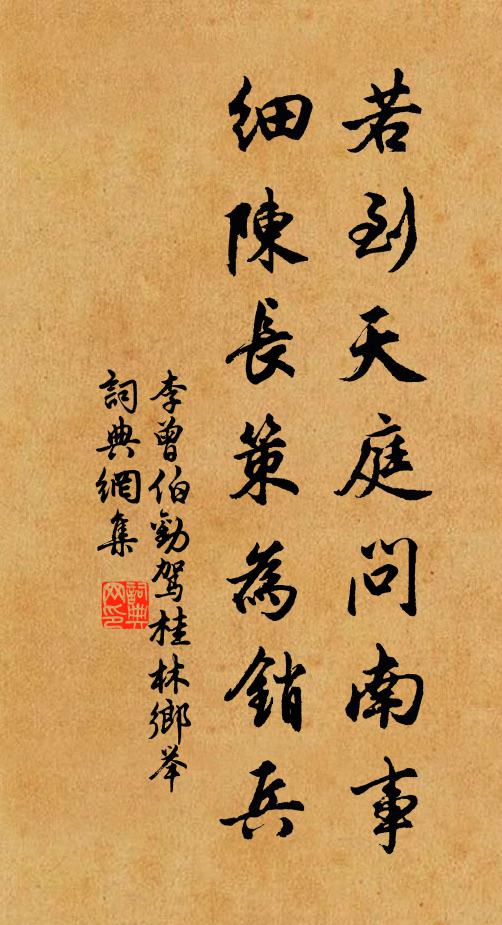 若到天庭問南事
細陳長策為銷兵
李曾伯勸駕桂林鄉举
詞典網集
詞典
网印